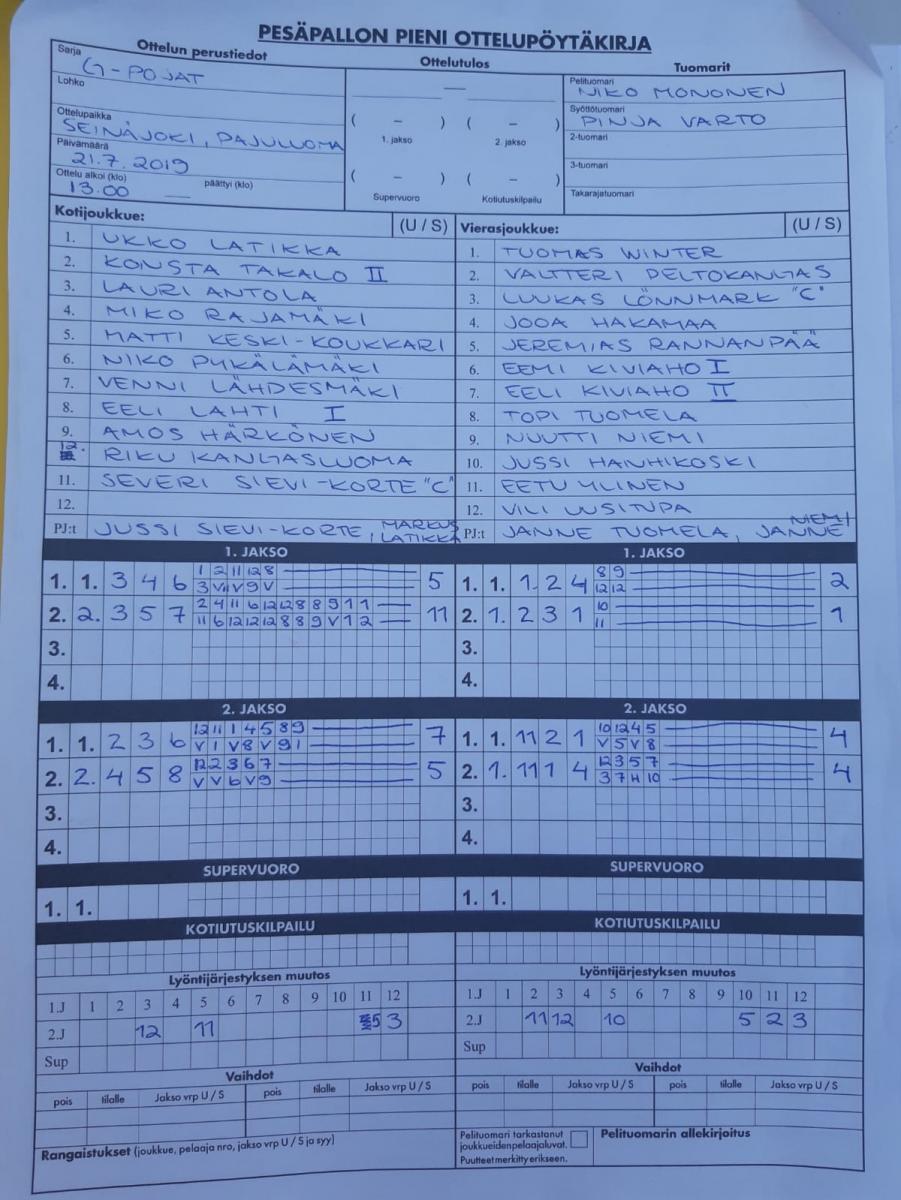 PESÄPALLON PIENI OTTELUPÖYTÄKIRJA
Ottelun perustiedot Ottelutulos Tuomarit
Sarja G-POJAT
Lohko
Ottelupaikka SEINÄJOKI, PAJULUOMA
Päivämäärä 21.7.2019
Ottelu alkoi (klo) 13.00 päättyi (klo)
—
( – ) ( – )
1. jakso 2. jakso
( – ) ( – )
Supervuoro Kotiutuskilpailu
Pelituomari NIKO MONONEN
Syöttötuomari PINJA VARTO
2-tuomari
3-tuomari
Takarajatuomari
Kotijoukkue: (U / S)
1. UKKO LATIKKA
2. KONSTA TAKALO II
3. LAURI ANTOLA
4. MIKO RAJAMÄKI
5. MATTI KESKI-KOUKKARI
6. NIKO PYKÄLÄMÄKI
7. VENNI LÄHDESMÄKI
8. EELI LAHTI I
9. AMOS HÄRKÖNEN
12. RIKU KANGASLUOMA
11. SEVERI SIEVI-KORTE "C"
12.
PJ:t JUSSI SIEVI-KORTE, MARKUS LATIKKA
Vierasjoukkue: (U / S)
1. TUOMAS WINTER
2. VALTTERI PELTOKANGAS
3. LUUKAS LÖNNMARK "C"
4. JOOA HAKAMAA
5. JEREMIAS RANNANPÄÄ
6. EEMI KIVIAHO I
7. EELI KIVIAHO II
8. TOPI TUOMELA
9. NUUTTI NIEMI
10. JUSSI HANHIKOSKI
11. EETU YLINEN
12. VILI UUSITUPA
PJ:t JANNE TUOMELA, JANNE NIEMI
1. JAKSO
1. 1. 3 4 6 5
1 2 11 12 8
3 V11 V 9 V
2. 2. 3 5 7 11
2 4 11 6 12 12 8 8 9 1 1
11 6 12 12 12 8 8 9 V 1 2
3.
4.
1. JAKSO
1. 1. 1 2 4 2
8 9
12 12
2. 1. 2 3 1 1
10
11
3.
4.
2. JAKSO
1. 1. 2 3 6 7
12 11 1 4 5 8 9
V 1 V 8 V 9 1
2. 2. 4 5 8 5
12 2 3 6 7
V V 6 V 9
3.
4.
2. JAKSO
1. 1. 11 2 1 4
10 12 4 5
V 5 V 8
2. 1. 11 1 4 4
12 3 5 7
3 7 H 10
3.
4.
SUPERVUORO SUPERVUORO
1. 1. 1. 1.
KOTIUTUSKILPAILU KOTIUTUSKILPAILU
Lyöntijärjestyksen muutos
1.J 1 2 3 4 5 6 7 8 9 10 11 12
2.J 12 11 5 3
Sup
Lyöntijärjestyksen muutos
1.J 1 2 3 4 5 6 7 8 9 10 11 12
2.J 11 12 10 5 2 3
Sup
Vaihdot Vaihdot
pois tilalle Jakso vrp U / S pois tilalle Jakso vrp U / S
pois tilalle Jakso vrp U / S pois tilalle Jakso vrp U / S
Rangaistukset (joukkue, pelaaja nro, jakso vrp U / S ja syy)
Pelituomari tarkastanut
joukkueidenpelaajaluvat.
Puutteet merkitty erikseen.
Pelituomarin allekirjoitus